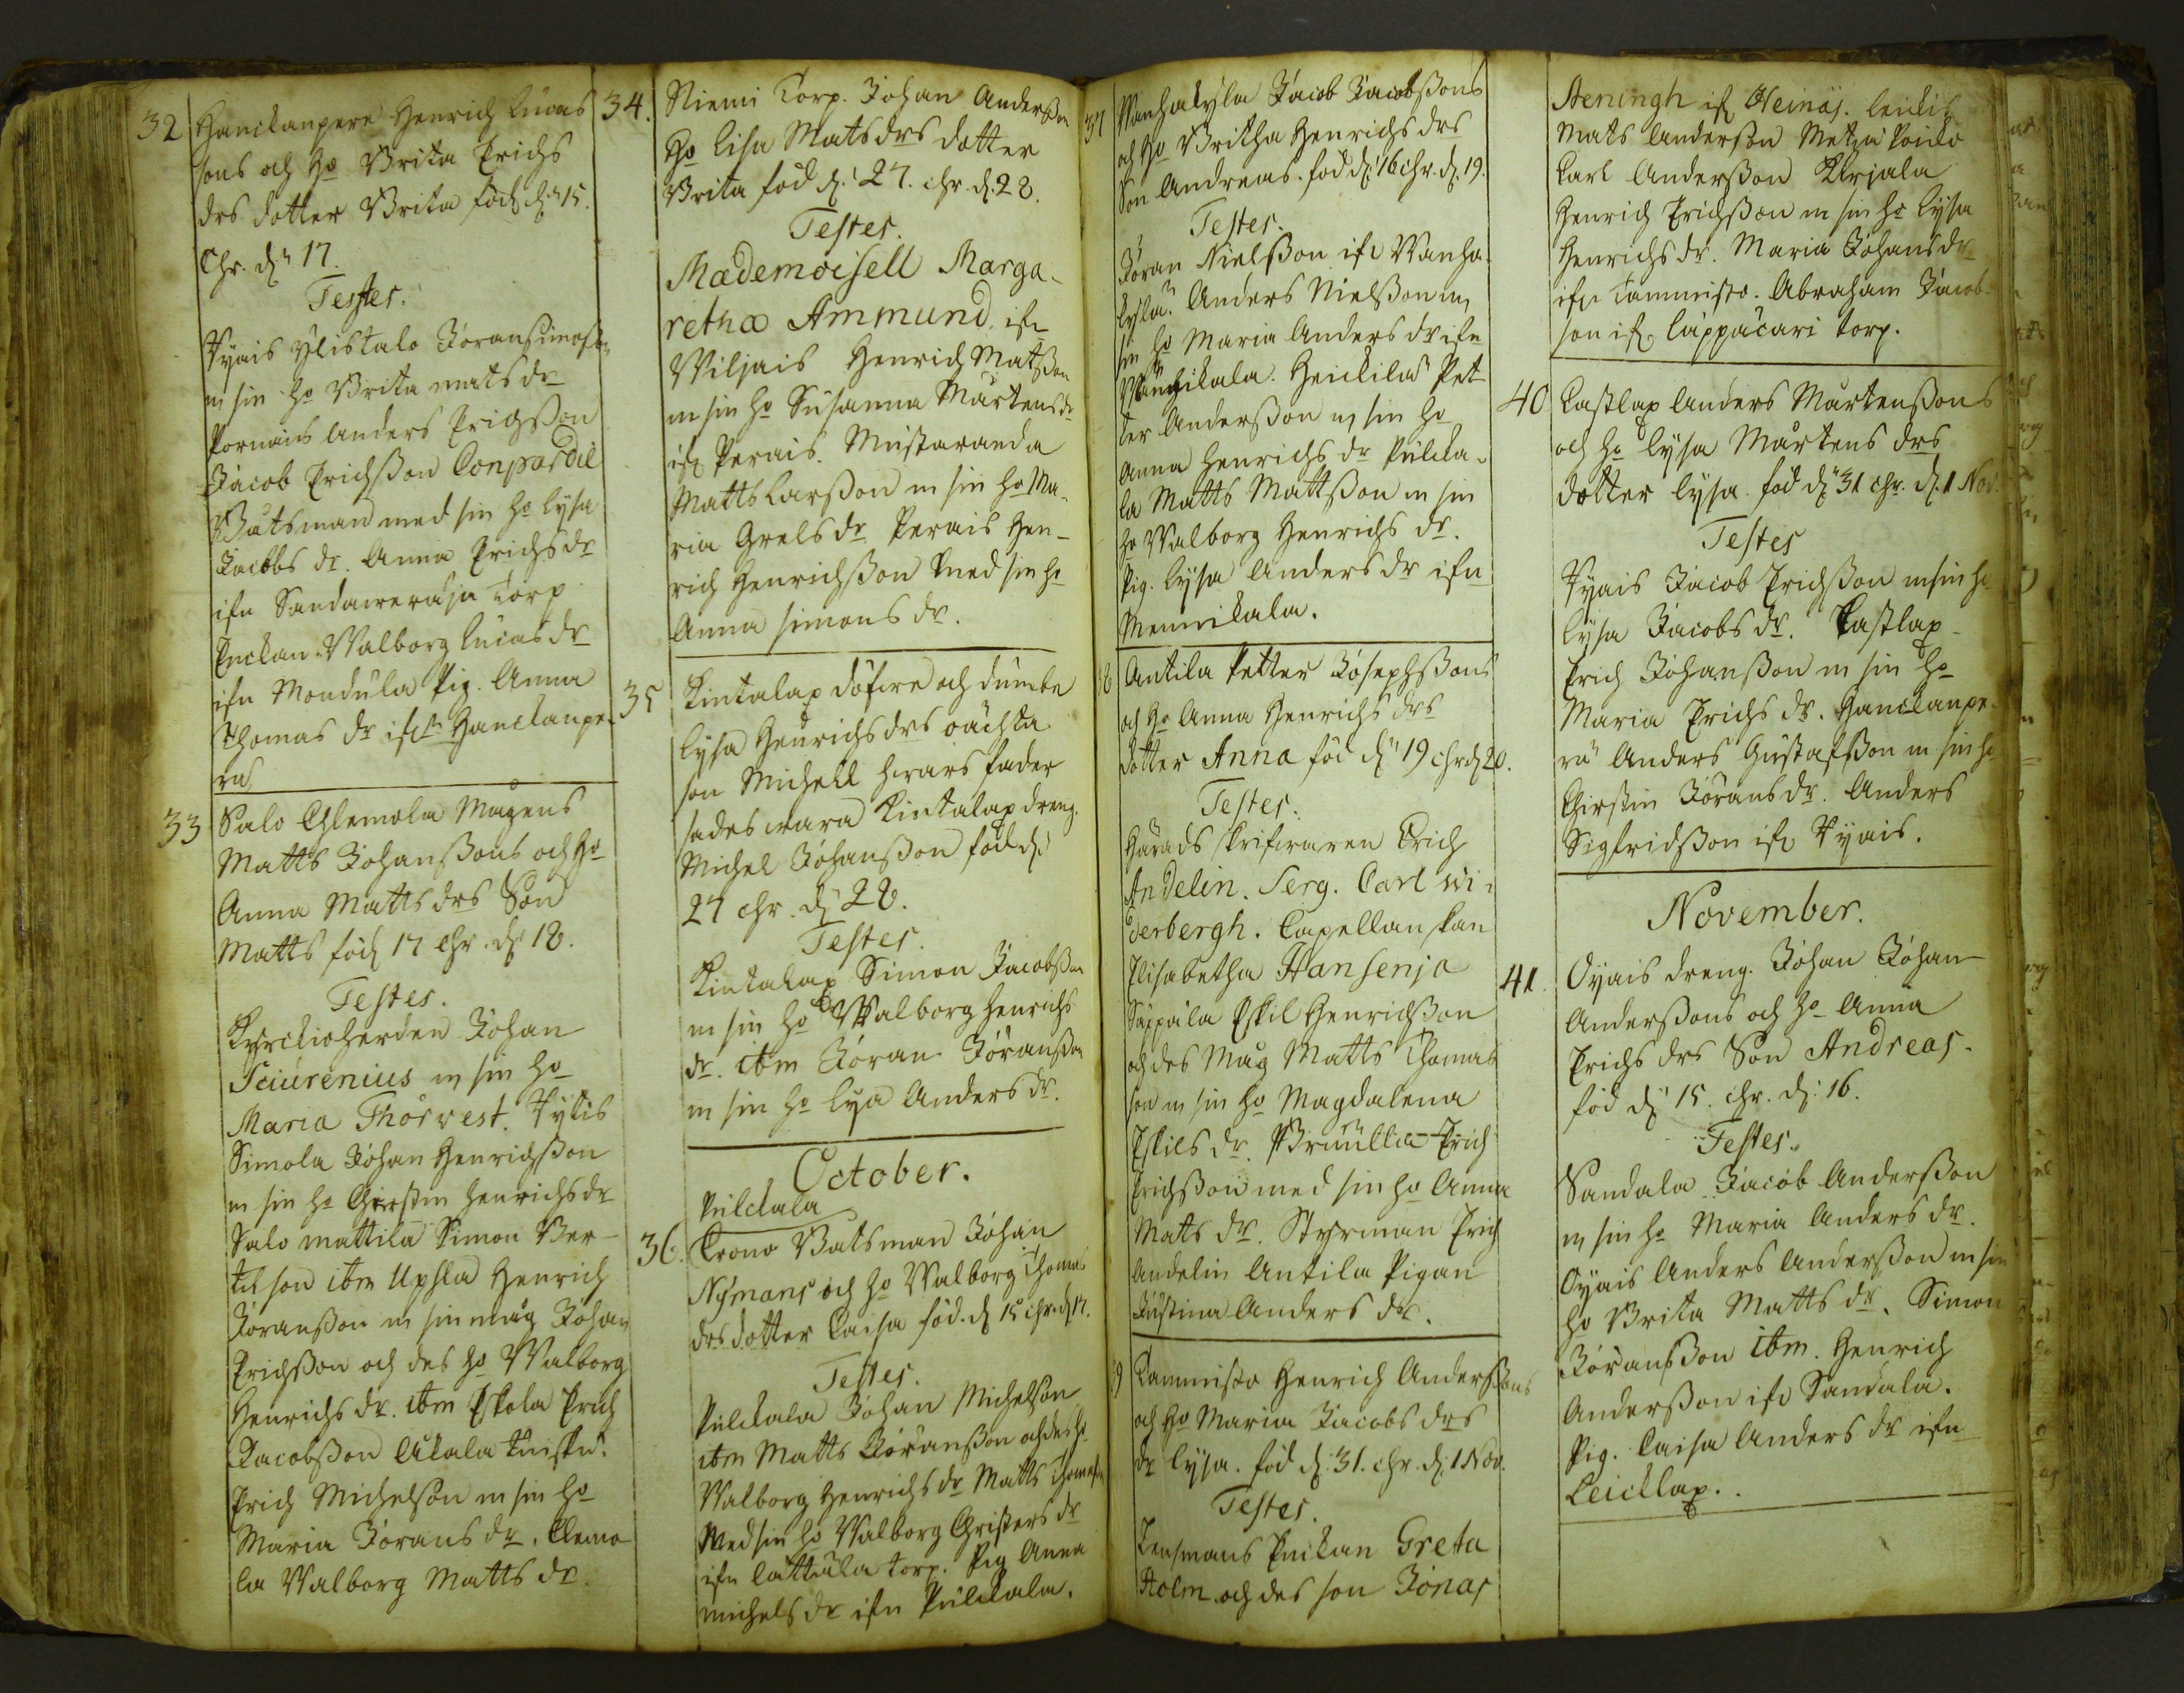 32 Hanckanpere Henrich Lucas
sons och Ho Brita Erichs
drs dotter Brita född d: 15.
Chr. d: 17.
Testes.
Tyais Ylistalo Jöran Simosson
m sin ho Brita Mats dr
Pornais Anders Erichsson
Jacob Erichsson
Båtsman med sin ho Lysa
Jacobs dr. Anna Erichs dr
ifn torp
Enckan Walborg Lucas dr
ifn Mondula Pig. Anna
Thomas dr ifrn Hanckanpe-
rä
33 Salo Clemola Magens
Matts Johanssons och Ho
Anna Matts drs Son
Matts född 17 Chr. d: 18.
Testes.
Kyrckioherden Johan
Sciurenius m sin ho
Maria Thorwest. Tylis
Simola Johan Henrichsson
m sin ho Chirstin Henrichs dr
Salo Mattila Simon Ber-
tilson itm Upsla Henrich
Jöransson m sin måg Johan
Erichsson och des ho Walborg
Henrichs dr. itm Eskola Erich
Jacobsson
Erich Michelson m sin ho
Maria Jörans dr. Clemo-
la Walborg Matts dr.
34. Niemi Torp. Johan Andersson
Ho Lisa Mats drs dotter
Brita föd d: 27. chr. d. 28.
Testes.
Mademoisell Marga-
retha Ammund, ifn
Wiljais Henrich Matsson
m sin ho Susanna Mårtens dr
ifn Perais. Mustaranda
Matts Larsson m sin ho Ma-
ria Grels dr Perais Hen-
rich Henrichsson med sin ho
Anna Simons dr.
35 Kintalax döfwe och dumbe
Lysa Henrichs drs oächta
son Michell hwars fader
sades wara Kintalax dreng
Michel Johansson född d:
27 chr. d: 28.
Testes.
Kintalax Simon Jacobsson
m sin ho Walborg Henrichs
dr. itm Jöran Jöransson
m sin ho Lysa Anders dr.
October.
Pulckala
36. Crono Båtsman Johan
Nymans och ho Walborg Thomas
drs dotter Caisa föd. d 15 chr. d 17.
Testes.
Pulckala Johan Michelson
itm Matts Jöransson och des ho
Walborg Henrichs dr Matts Thomasson
Med sin ho Walborg Christers dr
ifn Lattula torp. Pig Anna
Michels dr ifn Pulckala.
37 Wanhakyla Jacob Jacobssons
och Ho Britha Henrichs drs
Son Andreas. föd d: 16 chr. d. 19.
Testes.
Jöran Nielsson ifr Wanha-
kyla. Anders Nielsson m
sin ho Maria Anders dr ifn
Heickilä Pet-
ter Andersson m sin ho
Anna Henrichs dr Pulcka-
la Matts Mattsson m sin
ho Walborg Henrichs dr.
Pig. Lysa Anders dr ifn
Mennikala.
8 Antila Petter Josephssons
och Ho Anna Henrichs drs
dotter Anna föd d: 19 chr d 20.
Testes.
Härads skrifwaren Erich
Andelin. Serg. Carl Wi-
derbergh. Capellanskan
Elisabetha Hansenja
Säppälä Eskil Henrichsson
och des Måg Matts Thomas
son m sin ho Magdalena
Eskils dr. Erich
Erichsson med sin ho Anna
Mats dr. Styrman Erich
Andelin Antila Pigan
Justina Anders dr.
9 Tammisto Henrich Anderssons
och Ho Maria Jacobs drs
dr Lysa. föd d: 31. chr. d. 1 Nov.
Testes.
Lensmans Enckan Greta
Holm och des son Jonas
Aeningh if Heinäs.
Mats Andersson
Carl Andersson Kirjala
Henrich Erichsson m sin ho Lysa
Henrichs dr. Maria Johans dr
ifn Tammisto. Abraham Jacob-
son if Lappäcari torp.
40 Castlax Anders Mårtenssons
och ho Lysa Mårtens drs
dotter Lysa föd d: 31 chr. d. 1 Nov.
Testes
Tyais Jacob Erichsson m sin ho
Lysa Jacobs dr. Castlax
Erich Johansson m sin ho
Maria Erichs dr. Hanckanpe-
rä Anders Gustafsson m sin ho
Chirstin Jörans dr. Anders
Sigfridsson ifr Tyais.
November.
41. Oyais dreng. Johan Johan
Anderssons och ho Anna
Erichs drs Son Andreas.
föd d: 15. chr. d: 16.
Testes.
Sandala Jacob Andersson
m sin ho Maria Anders dr.
Oyais Anders Andersson m sin
ho Brita Matts dr. Simon
Jöransson itm. Henrich
Andersson ifr Sandala.
Pig. Caisa Anders dr ifn
Leicklax.